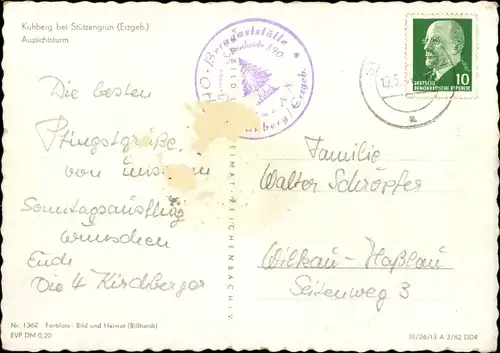 Kuhberg bei Stützengrün (Erzgeb.)
Aussichtsturm
HO-Berggaststätte
Kuhberg/Erzgeb.
10
DEUTSCHE
DEMOKRATISCHE REPUBLIK
Die besten
Pfingstgrüße
von unserem
Sonntagsausflug
wünschen
Euch
Die 4 Kirchberger
Familie
Walter Schröpfer
Wilkau-Haßlau
Seitenweg 3
Nr. 1362 Farbfoto: Bild und Heimat (Billhardt)
EVP DM 0,20
BILD HEIMAT REICHENBACH I. V.
III/26/13 A 3/62 DDR